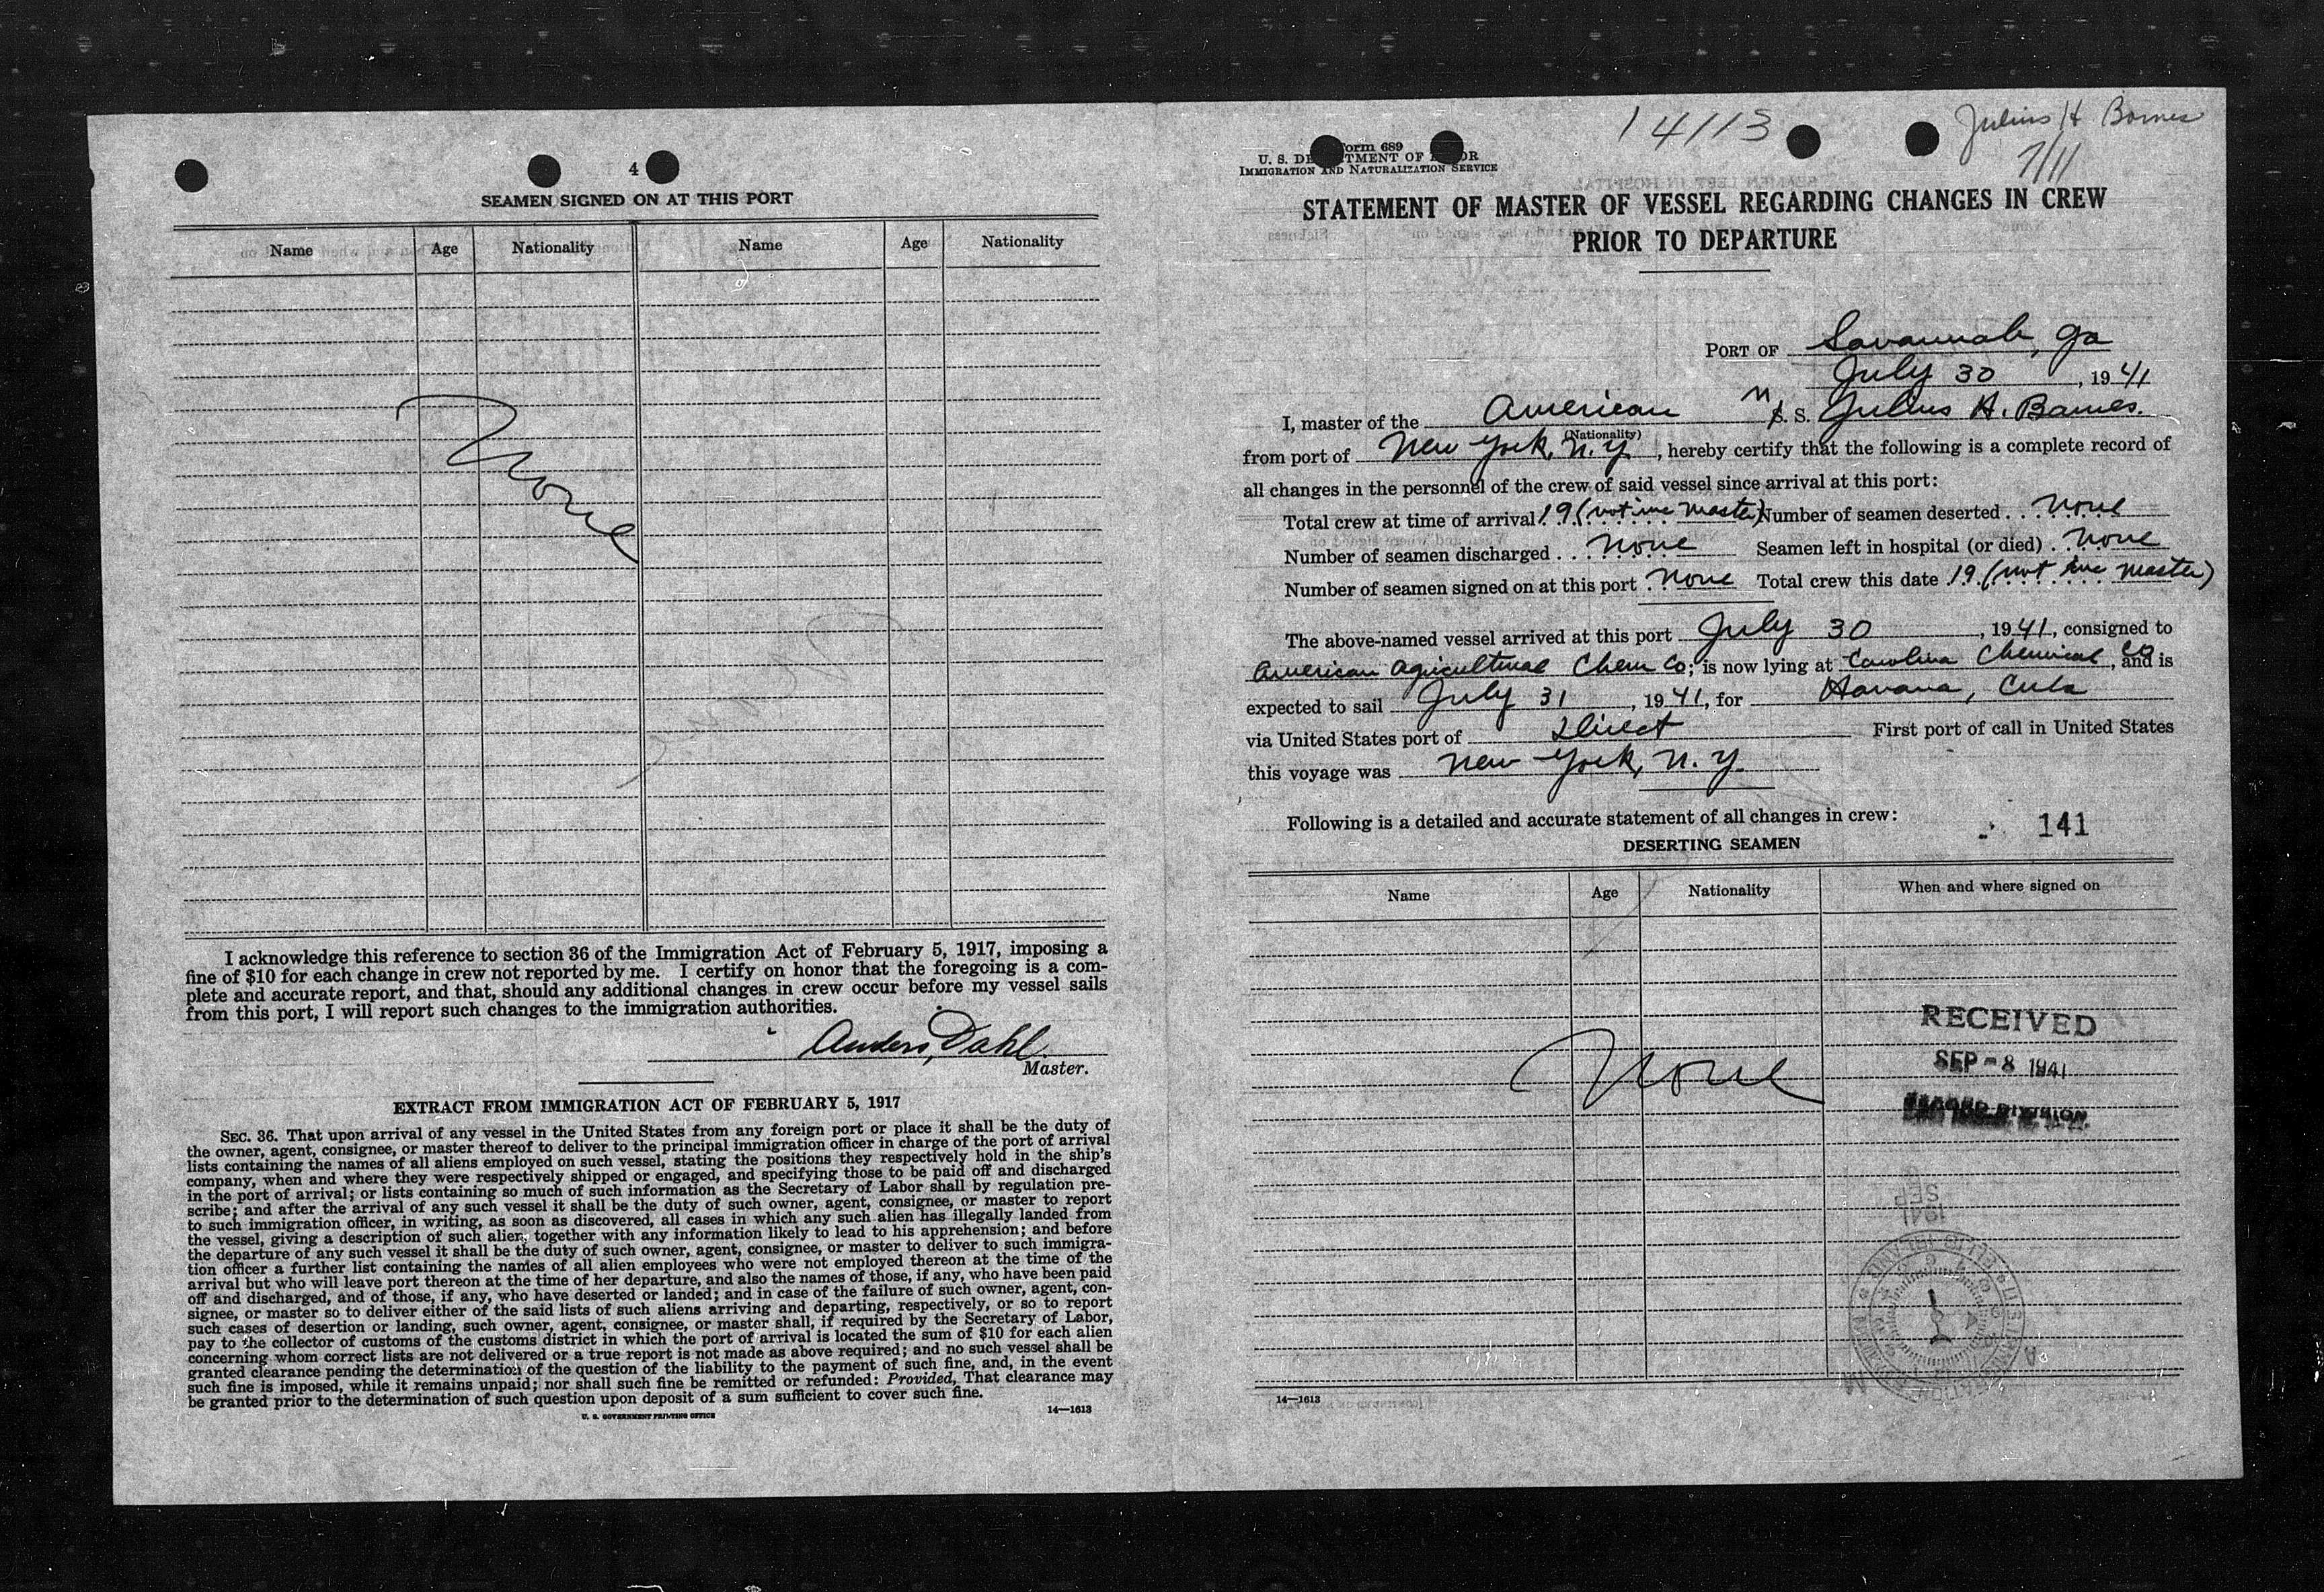 4
SEAMEN SIGNED ON AT THIS PORT
Name Age Nationality Name Age Nationality
None
I acknowledge this reference to section 36 of the Immigration Act of February 5, 1917, imposing a
fine of $10 for each change in crew not reported by me. I certify on honor that the foregoing is a com-
plete and accurate report, and that, should any additional changes in crew occur before my vessel sails
from this port, I will report such changes to the immigration authorities.
Anders Dahl
Master.
EXTRACT FROM IMMIGRATION ACT OF FEBRUARY 5, 1917
SEC. 36. That upon arrival of any vessel in the United States from any foreign port or place it shall be the duty of
the owner, agent, consignee, or master thereof to deliver to the principal immigration officer in charge of the port of arrival
lists containing the names of all aliens employed on such vessel, stating the positions they respectively hold in the ship's
company, when and where they were respectively shipped or engaged, and specifying those to be paid off and discharged
in the port of arrival; or lists containing so much of such information as the Secretary of Labor shall by regulation pre-
scribe; and after the arrival of any such vessel it shall be the duty of such owner, agent, consignee, or master to report
to such immigration officer, in writing, as soon as discovered, all cases in which any such alien has illegally landed from
the vessel, giving a description of such alien, together with any information likely to lead to his apprehension; and before
the departure of any such vessel it shall be the duty of such owner, agent, consignee, or master to deliver to such immigra-
tion officer a further list containing the names of all alien employees who were not employed thereon at the time of the
arrival but who will leave port thereon at the time of her departure, and also the names of those, if any, who have been paid
off and discharged, and of those, if any, who have deserted or landed; and in case of the failure of such owner, agent, con-
signee, or master so to deliver either of the said lists of such aliens arriving and departing, respectively, or so to report
such cases of desertion or landing, such owner, agent, consignee, or master shall, if required by the Secretary of Labor,
pay to the collector of customs of the customs district in which the port of arrival is located the sum of $10 for each alien
concerning whom correct lists are not delivered or a true report is not made as above required; and no such vessel shall be
granted clearance pending the determination of the question of the liability to the payment of such fine, and, in the event
such fine is imposed, while it remains unpaid; nor shall such fine be remitted or refunded: Provided, That clearance may
be granted prior to the determination of such question upon deposit of a sum sufficient to cover such fine.
U. S. GOVERNMENT PRINTING OFFICE 14—1613
14113 Julius H Barnes
7/11
Form 689
U. S. DEPARTMENT OF LABOR
IMMIGRATION AND NATURALIZATION SERVICE
STATEMENT OF MASTER OF VESSEL REGARDING CHANGES IN CREW
PRIOR TO DEPARTURE
PORT OF Savannah, Ga
July 30, 1941
I, master of the American M S. S. Julius H. Barnes.
(Nationality)
from port of New York, N.Y, hereby certify that the following is a complete record of
all changes in the personnel of the crew of said vessel since arrival at this port:
Total crew at time of arrival 19 (not inc Master) Number of seamen deserted . . None
Number of seamen discharged . . . None Seamen left in hospital (or died) . None
Number of seamen signed on at this port None Total crew this date 19 (not inc Master)
The above-named vessel arrived at this port July 30, 1941, consigned to
American Agricultural Chem Co; is now lying at Carolina Chemical Co, and is
expected to sail July 31, 1941, for Havana, Cuba
via United States port of Direct First port of call in United States
this voyage was New York, N.Y.
Following is a detailed and accurate statement of all changes in crew:
141
DESERTING SEAMEN
Name Age Nationality When and where signed on
None
RECEIVED
SEP - 8 1941
14—1613